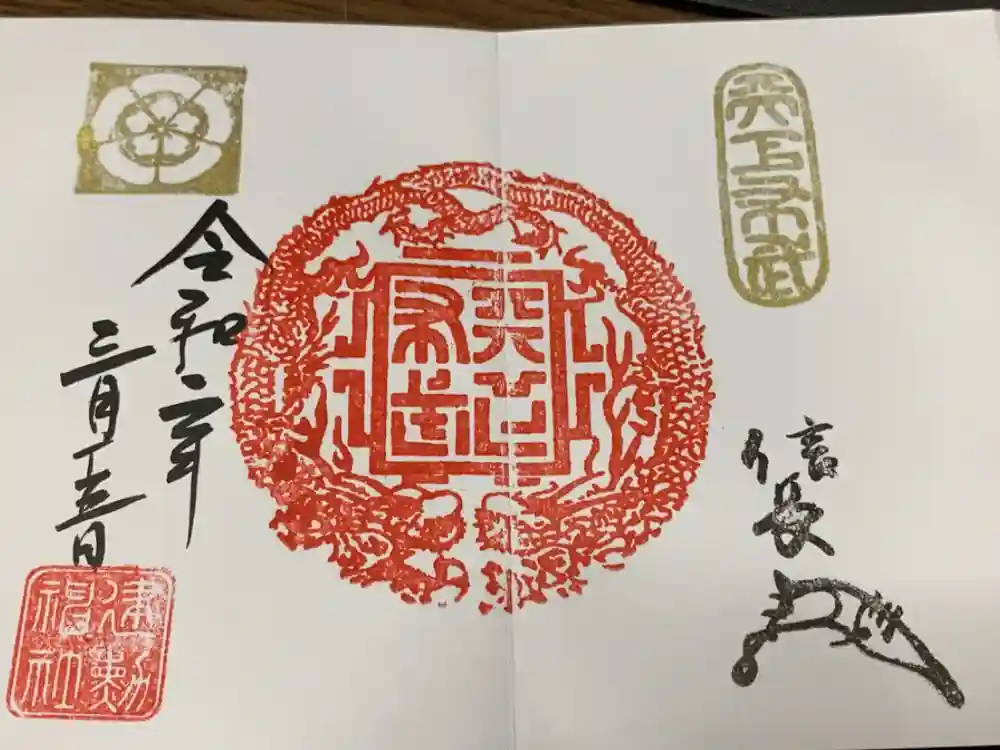 天下布武
信長
天下
布武
令和二年
三月十五日
建勲
神社